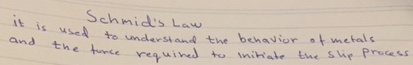 Schmid's Law
it is used to understand the behavior of metals
and the force required to initiate the slip process